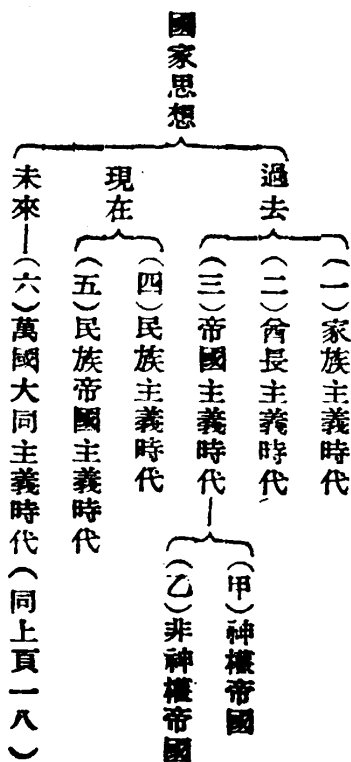 國家思想
過去
(一)家族主義時代
(二)酋長主義時代
(三)帝國主義時代
(甲)神權帝國
(乙)非神權帝國
現在
(四)民族主義時代
(五)民族帝國主義時代
未來—(六)萬國大同主義時代(同上頁一八)